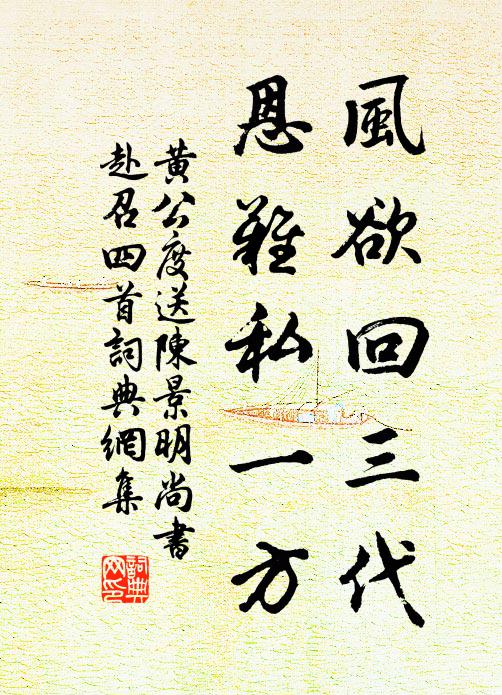 風欲回三代
恩難私一方
黄公度送陳景明尚書
赴召四首詞典網集
詞典
网印